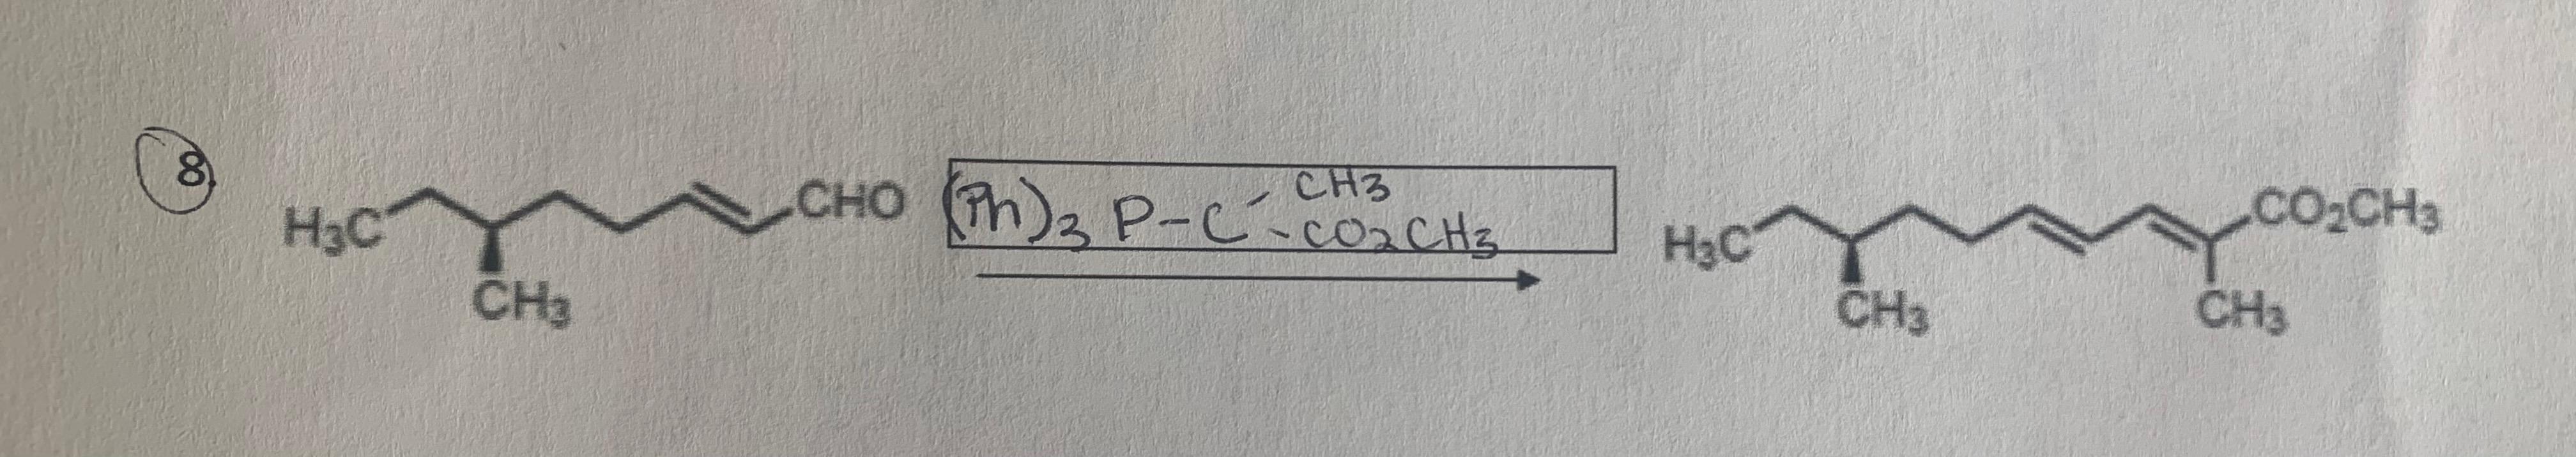 8.
H3C CH3 CHO
(Ph)3 P-C CH3 CO2CH3
H3C CH3 CO2CH3 CH3